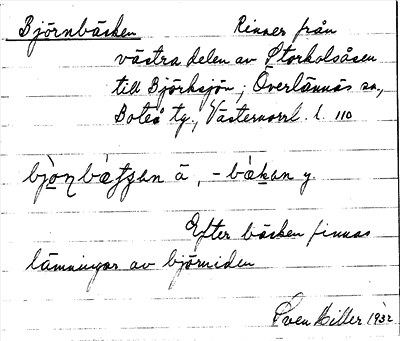 Björnbäcken Rinner från
västra delen av Storkolsåsen
till Björksjön, Överlännäs sn,
Boteå tg., Västernorrl. l. 110
bjò̱n bæ̀tʃan ä, - bæ̀kan y
Efter bäcken finnas
lämningar av björniden
Sven Hiller 1932